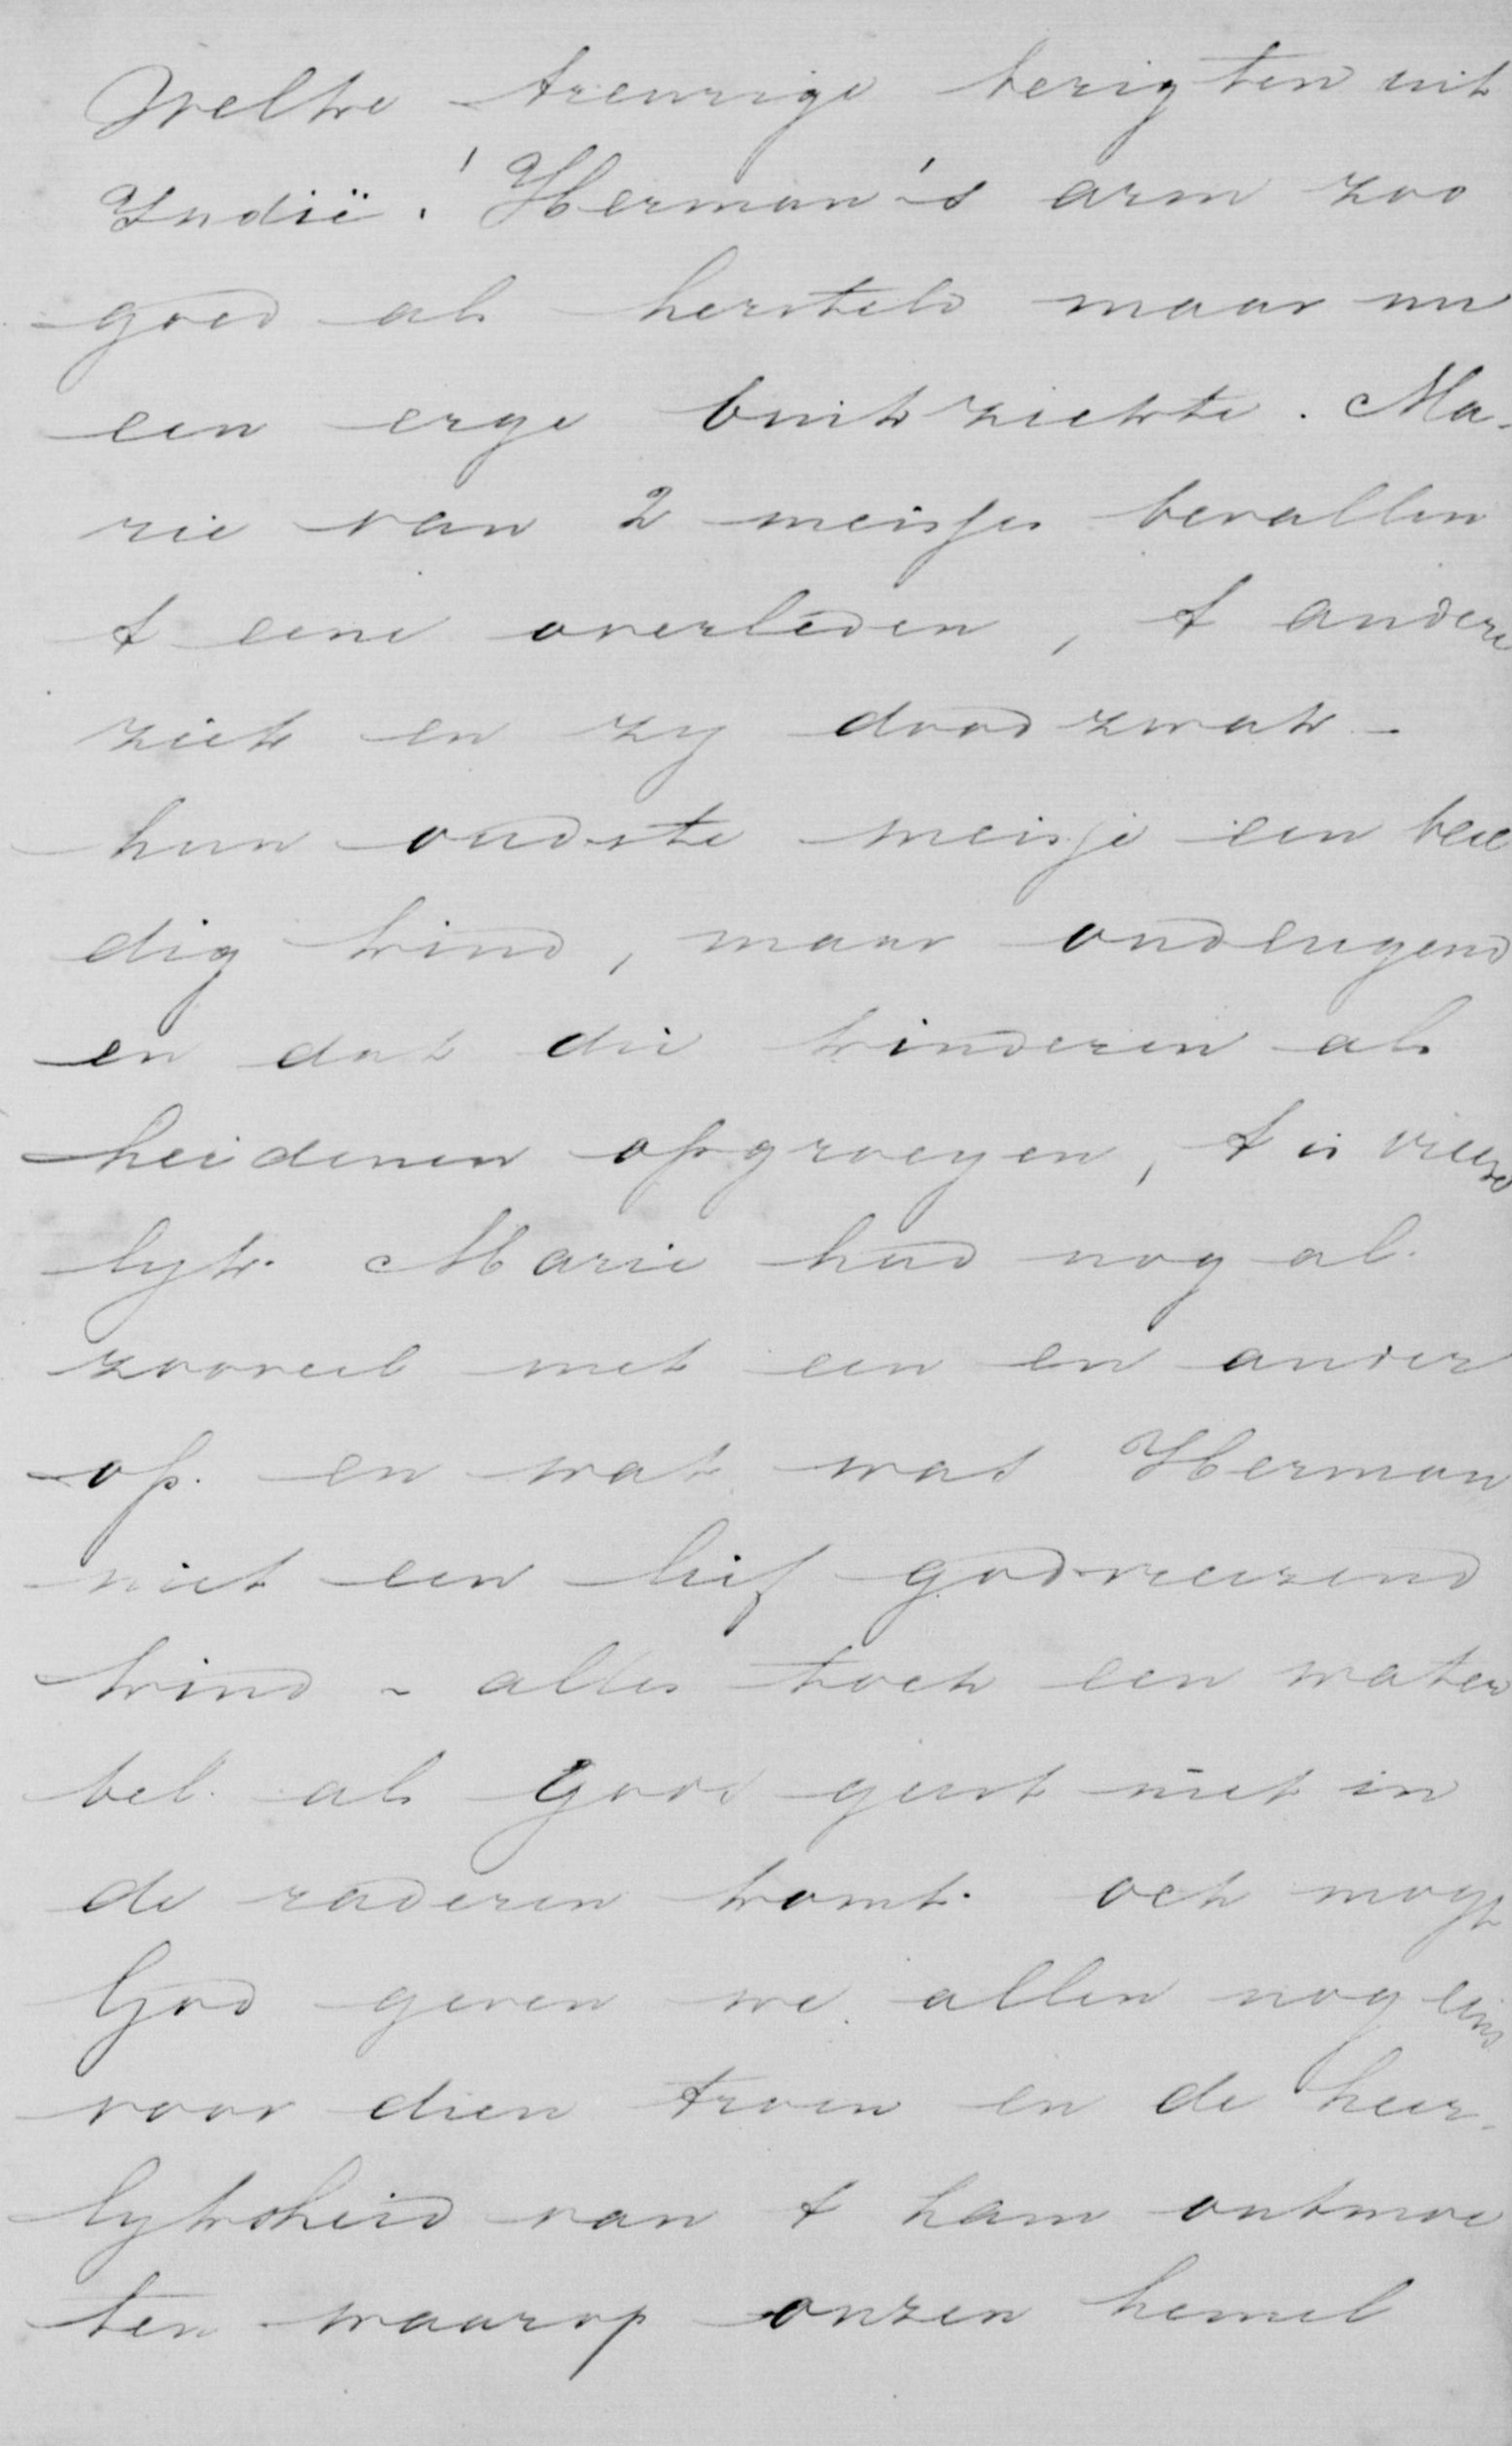 Welke treurige berigten uit
Indië! Herman's arm zoo
goed als hersteld maar nu
een erge buikziekte. Ma-
rie van 2 meisjes bevallen
t eene overleden, t andere
ziek en zy doodzwak -
hun oudste meisje een beel
dig kind, maar ondeugend
en dat die kinderen als
heidenen opgroeyen, t is vrees
lyk. Marie had nog al
zooveel met een en ander
op. en wat was Herman
niet een lief godvreezend
kind - alles toch een water
bel als Gods geest niet in
de raderen komt. och mogt
God geven we allen nog eens
voor dien troon en de heer-
lykheid van t Lam ontmoe
ten waarop onzen hemel